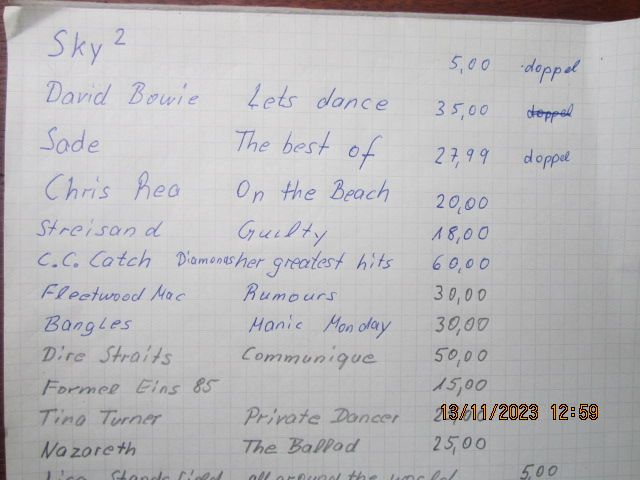 Sky 2 5,00 doppel
David Bowie Lets dance 35,00 doppel
Sade The best of 27,99 doppel
Chris Rea On the Beach 20,00
Streisand Guilty 18,00
C.C. Catch Diamonds her greatest hits 60,00
Fleetwood Mac Rumours 30,00
Bangles Manic Monday 30,00
Dire Straits Communique 50,00
Formel Eins 85 15,00
Tina Turner Private Dancer 13/11/2023 12:59
Nazareth The Ballad 25,00
Lisa Standsfield all around the world 5,00